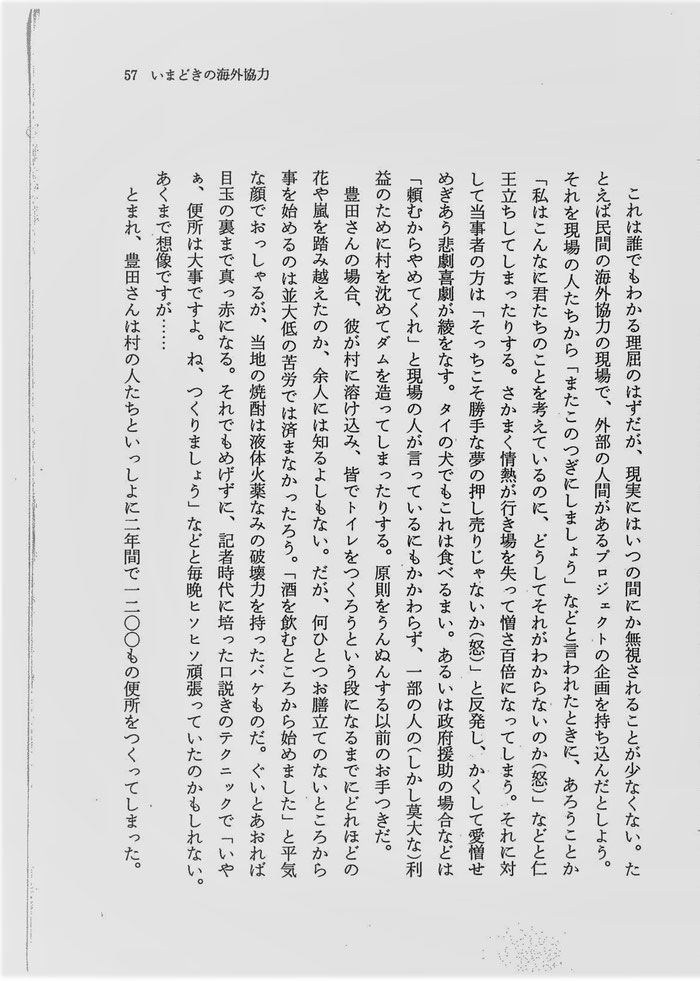 57 いまどきの海外協力
これは誰でもわかる理屈のはずだが、現実にはいつの間にか無視されることが少なくない。た
とえば民間の海外協力の現場で、外部の人間があるプロジェクトの企画を持ち込んだとしよう。
それを現場の人たちから「またこのつぎにしましょう」などと言われたときに、あろうことか
「私はこんなに君たちのことを考えているのに、どうしてそれがわからないのか(怒)」などと仁
王立ちしてしまったりする。さかまく情熱が行き場を失って憎さ百倍になってしまう。それに対
して当事者の方は「そっちこそ勝手な夢の押し売りじゃないか(怒)」と反発し、かくして愛憎せ
めぎあう悲劇喜劇が綾をなす。タイの犬でもこれは食べるまい。あるいは政府援助の場合などは
「頼むからやめてくれ」と現場の人が言っているにもかかわらず、一部の人の(しかし莫大な)利
益のために村を沈めてダムを造ってしまったりする。原則をうんぬんする以前のお手つきだ。
豊田さんの場合、彼が村に溶け込み、皆でトイレをつくろうという段になるまでにどれほどの
花や嵐を踏み越えたのか、余人には知るよしもない。だが、何ひとつお膳立てのないところから
事を始めるのは並大低の苦労では済まなかったろう。「酒を飲むところから始めました」と平気
な顔でおっしゃるが、当地の焼酎は液体火薬なみの破壊力を持ったバケものだ。ぐいとあおれば
目玉の裏まで真っ赤になる。それでもめげずに、記者時代に培った口説きのテクニックで「いや
ぁ、便所は大事ですよ。ね、つくりましょう」などと毎晩ヒソヒソ頑張っていたのかもしれない。
あくまで想像ですが……
とまれ、豊田さんは村の人たちといっしょに二年間で一二〇〇もの便所をつくってしまった。